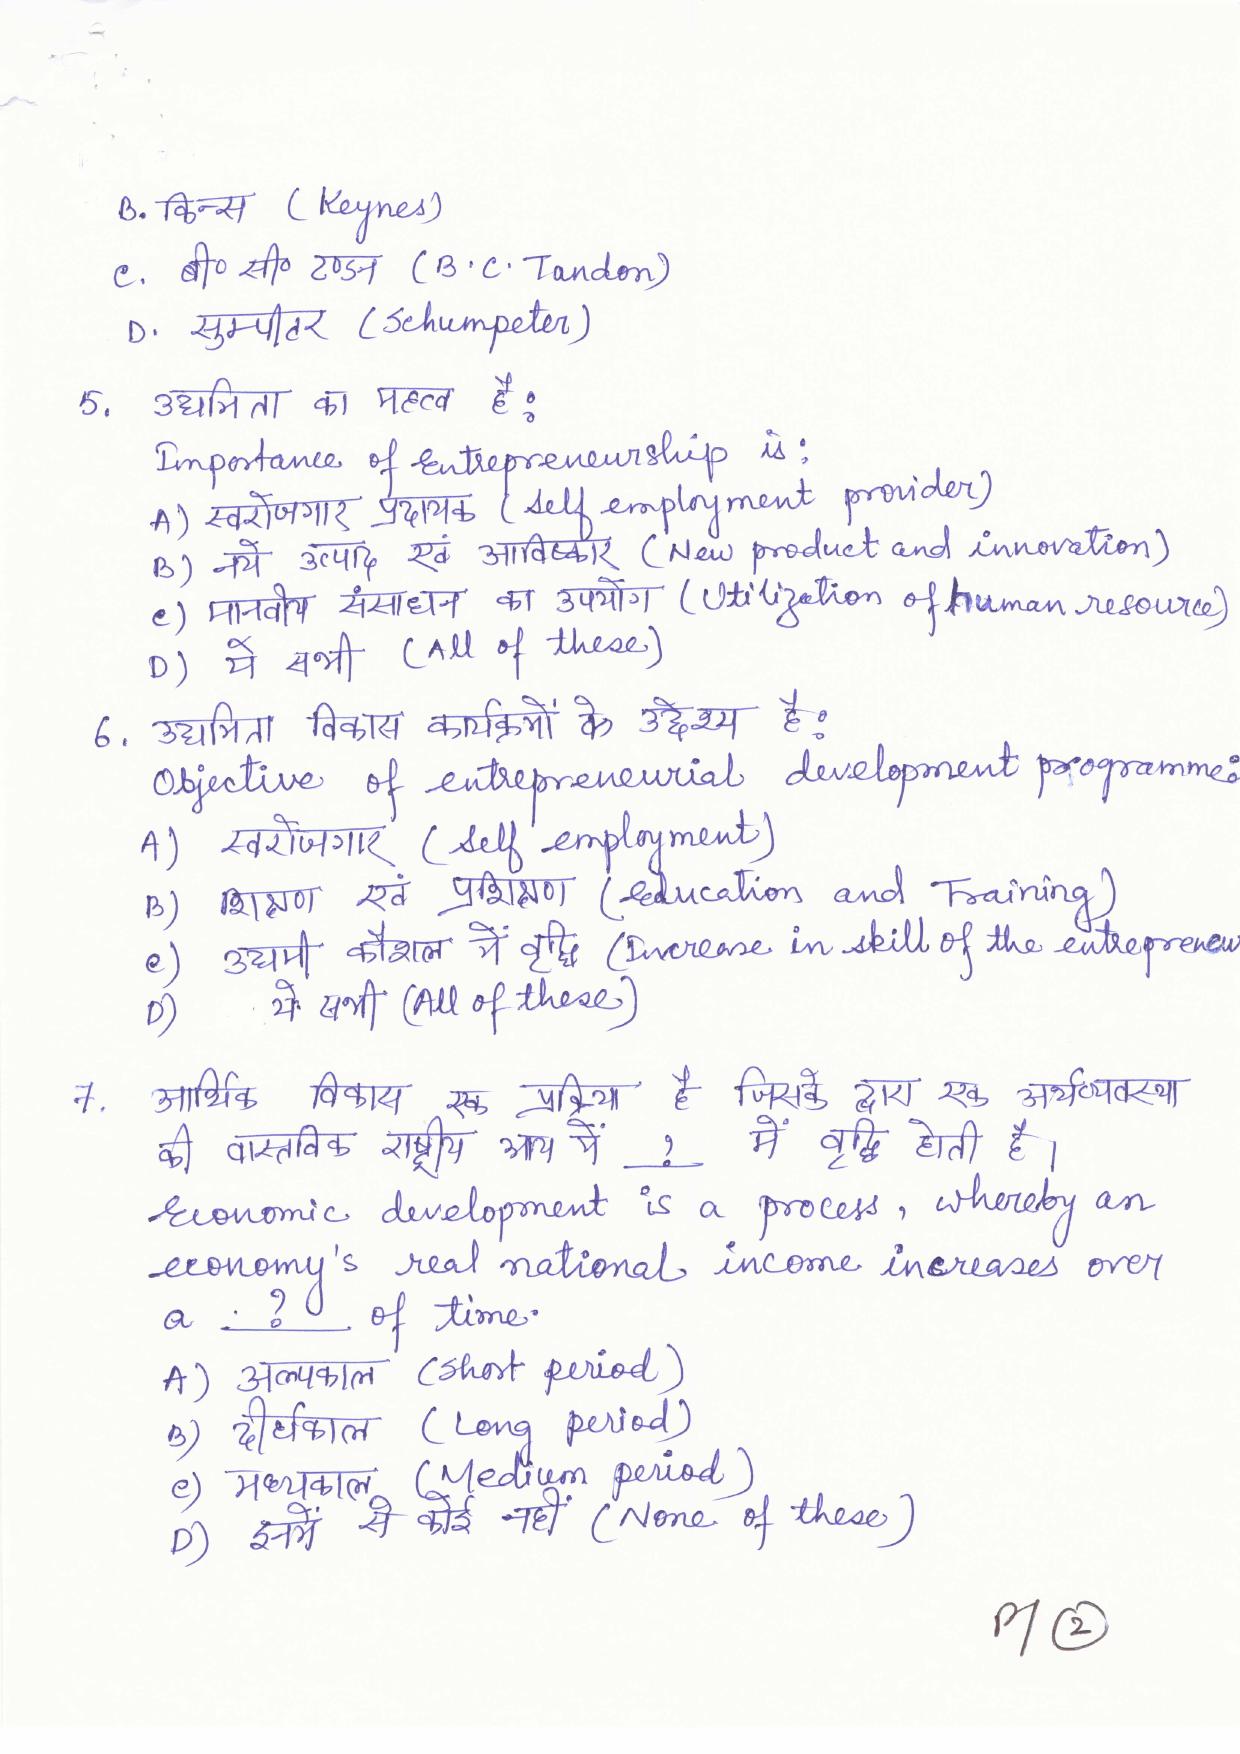 B. किन्स (Keynes)
C. बी० सी० टण्डन (B.C. Tandon)
D. सुम्पीटर (Schumpeter)
5. उद्यमिता का महत्व है:
Importance of Entrepreneurship is:
A) स्वरोजगार प्रदायक (Self employment provider)
B) नये उत्पाद एवं आविष्कार (New product and innovation)
C) मानवीय संसाधन का उपयोग (Utilization of human resource)
D) ये सभी (All of these)
6. उद्यमिता विकास कार्यक्रमों के उद्देश्य है:
Objective of entrepreneurial development programme:
A) स्वरोजगार (Self employment)
B) शिक्षण एवं प्रशिक्षण (Education and Training)
C) उद्यमी कौशल में वृद्धि (Increase in skill of the entrepreneu
D) ये सभी (All of these)
7. आर्थिक विकास एक प्रक्रिया है जिसके द्वारा एक अर्थव्यवस्था
की वास्तविक राष्ट्रीय आय में __?__ में वृद्धि होती है।
Economic development is a process, whereby an
economy's real national income increases over
a __?__ of time.
A) अल्पकाल (Short period)
B) दीर्घकाल (Long period)
C) मध्यकाल (Medium period)
D) इनमें से कोई नहीं (None of these)
P/2